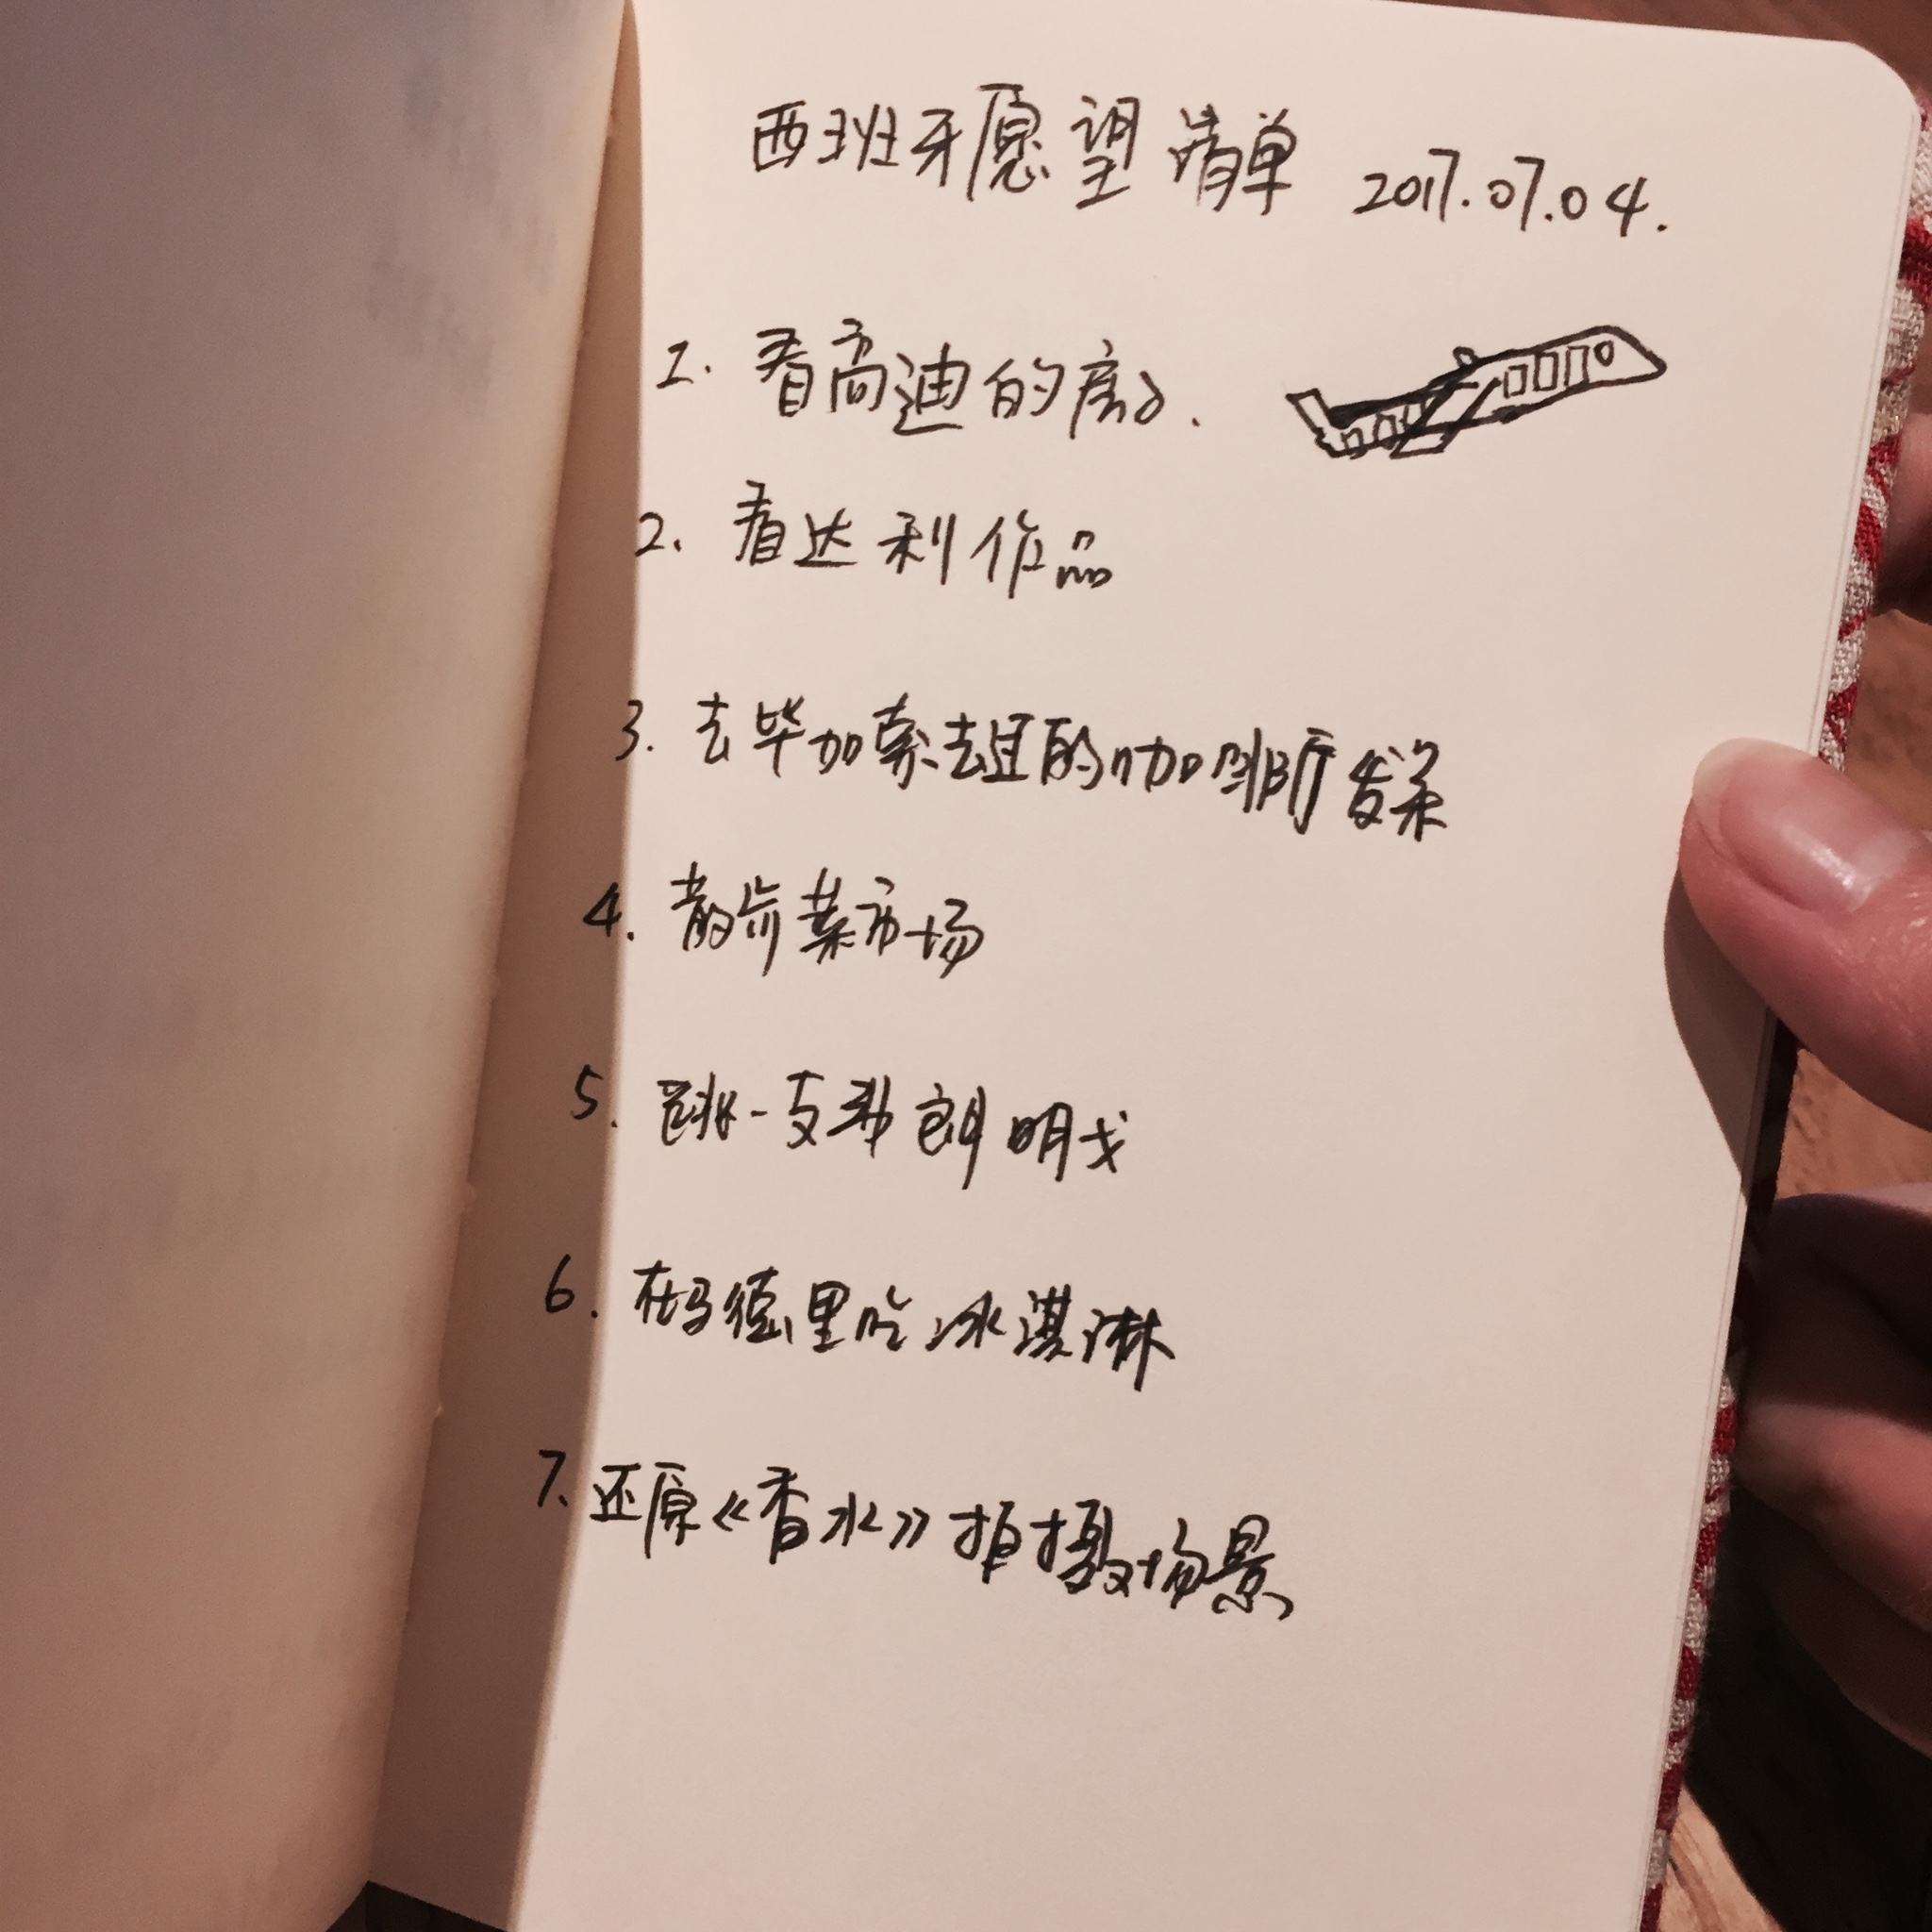 西班牙愿望清单 2017.07.04.
1. 看高迪的房子.
2. 看达利作品
3. 去毕加索去过的咖啡厅发呆
4. 散步菜市场
5. 跳一支弗朗明戈
6. 在马德里吃冰淇淋
7. 还原《香水》拍摄场景